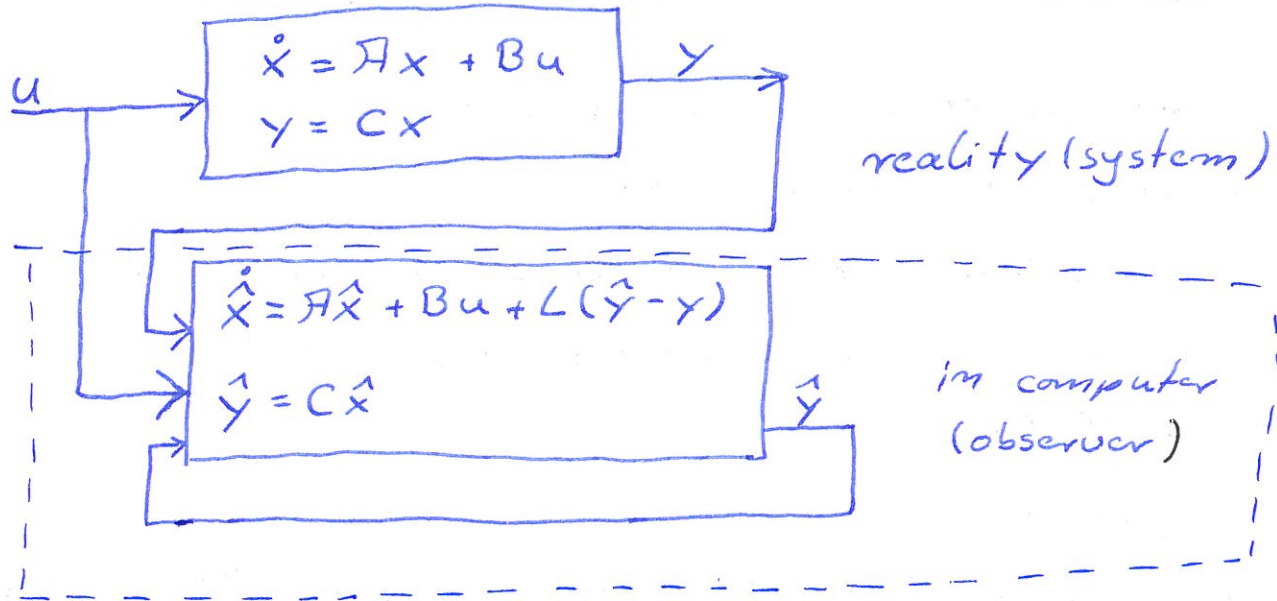 u
ẋ = Ax + Bu
y = Cx
y
reality (system)
x̂̇ = Ax̂ + Bu + L(ŷ - y)
ŷ = Cx̂
ŷ
in computer
(observer)